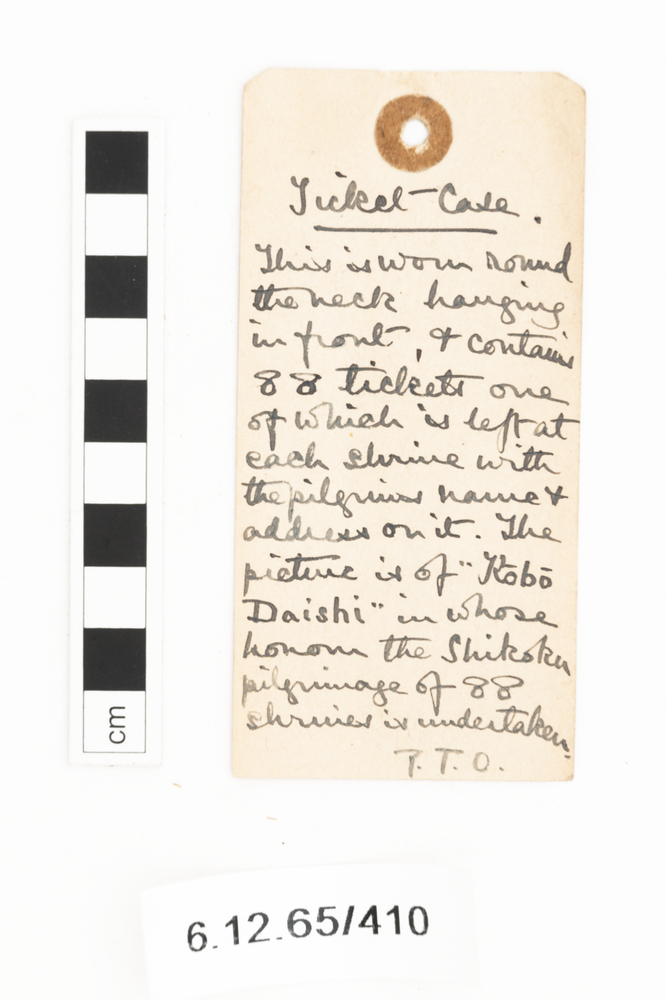 Ticket-Case.
This is worn round
the neck hanging
in front, & contains
88 tickets one
of which is left at
each shrine with
the pilgrims name &
address on it. The
picture is of "Kobō
Daishi" in whose
honour the Shikoku
pilgrimage of 88
shrines is undertaken.
P.T.O.
cm
6.12.65/410